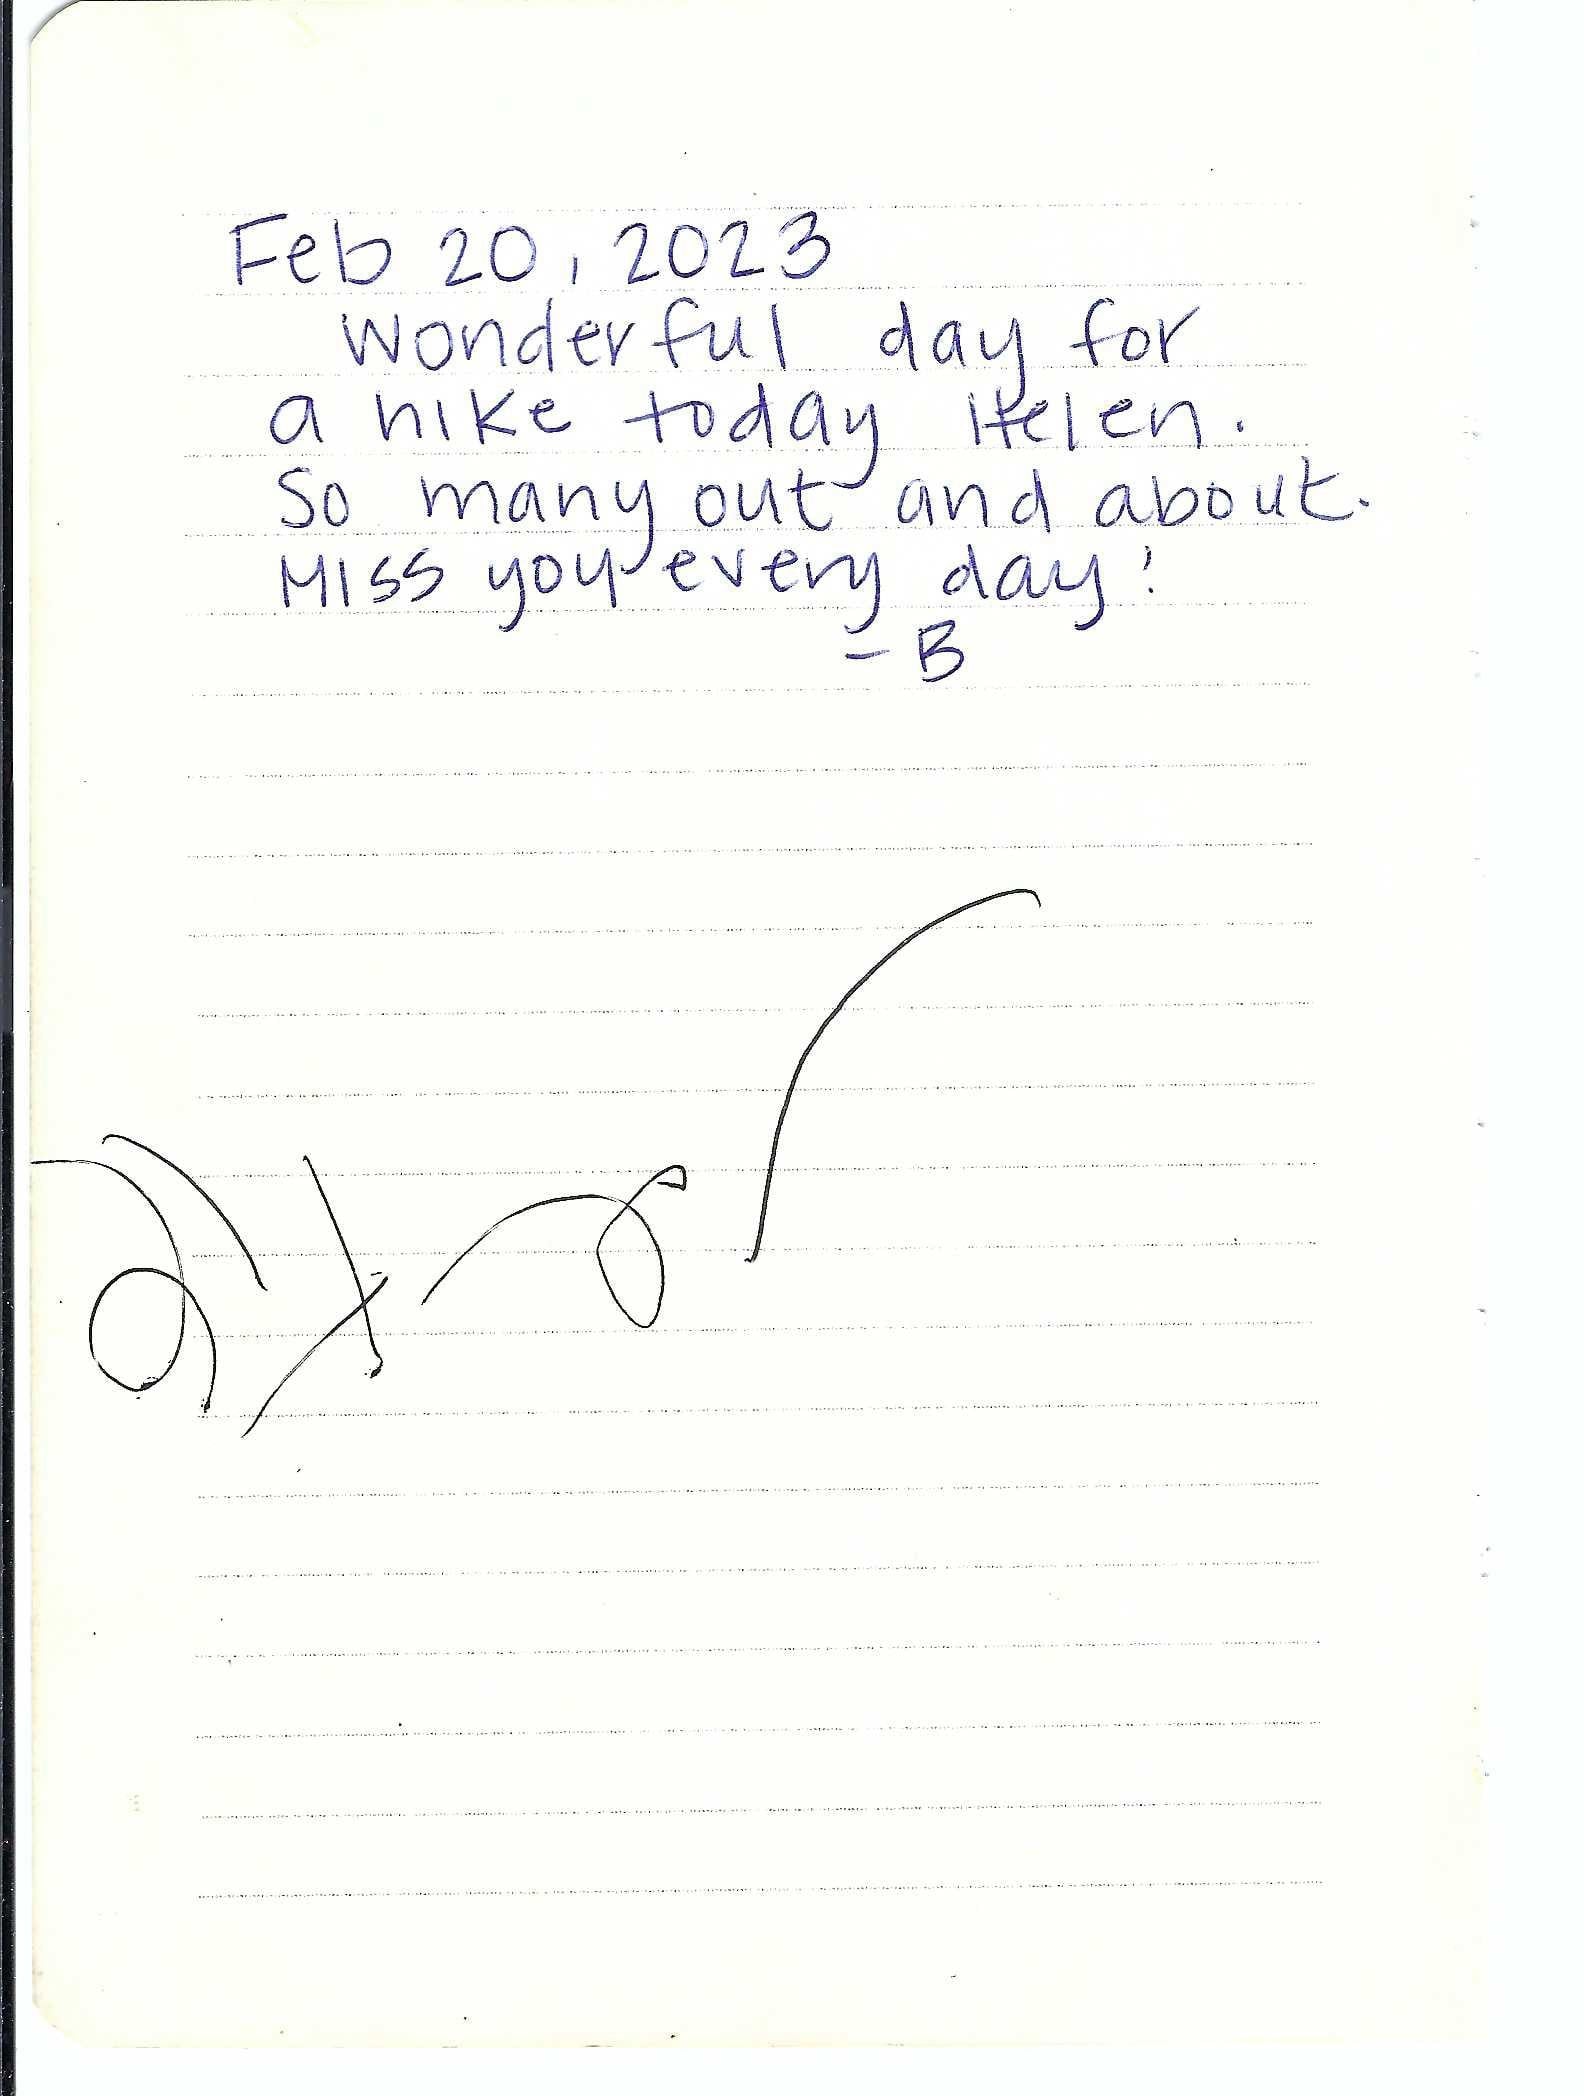 Feb 20, 2023
Wonderful day for
a hike today Helen.
So many out and about.
Miss you every day!
- B